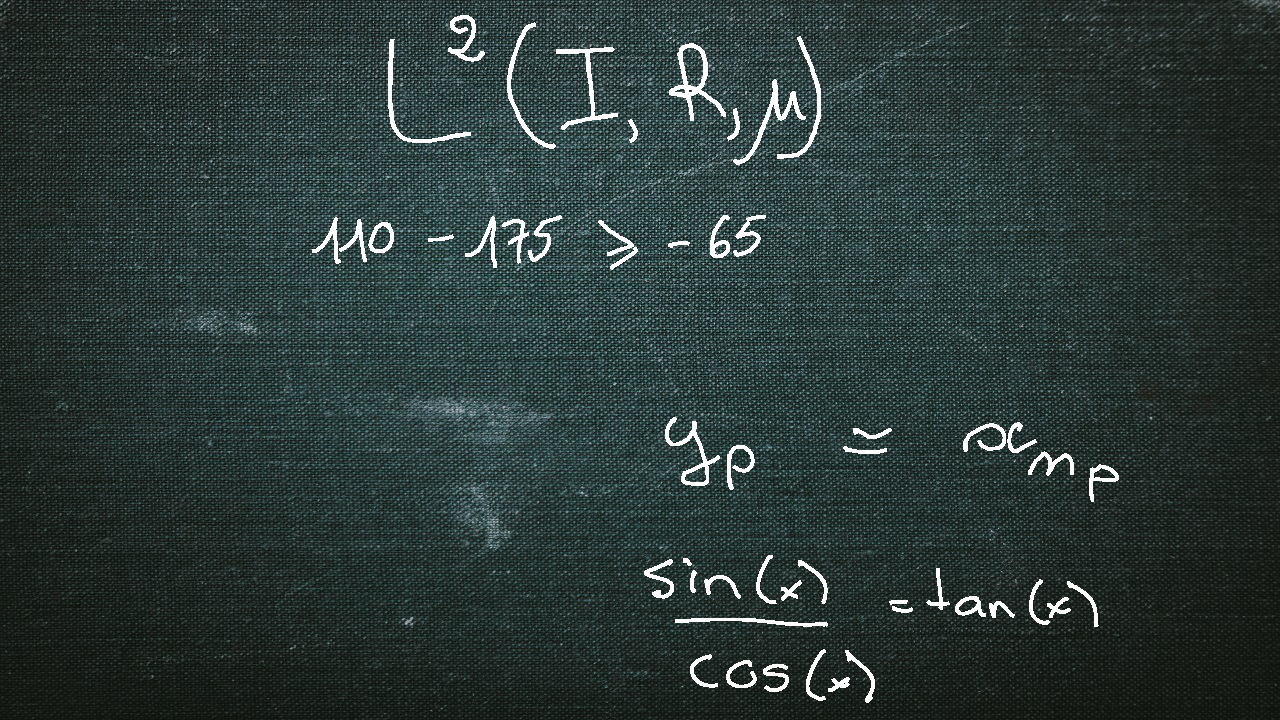 L²(I, R, μ)
110 - 175 ⩾ -65
y_p = x_{n_p}
sin(x)/cos(x) = tan(x)